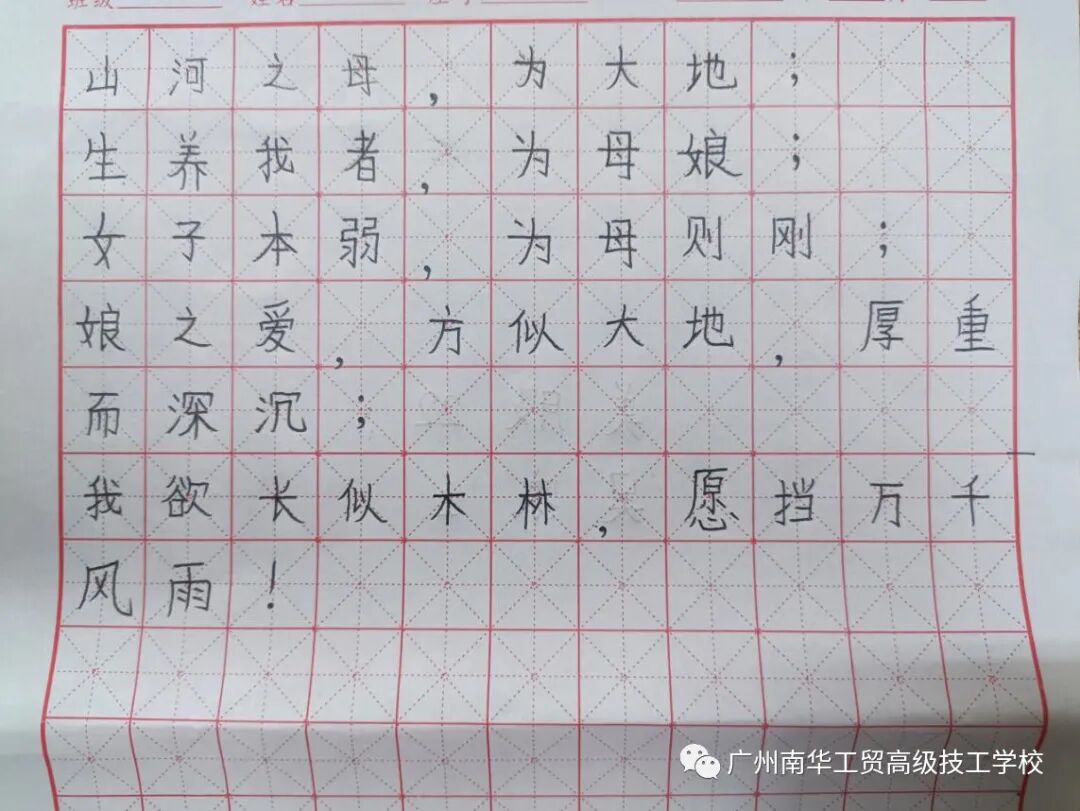 班级 姓名
山河之母，为大地；
生养我者，为母娘；
女子本弱，为母则刚；
娘之爱，方似大地，厚重
而深沉；
我欲长似木林，愿挡万千
风雨！
广州南华工贸高级技工学校